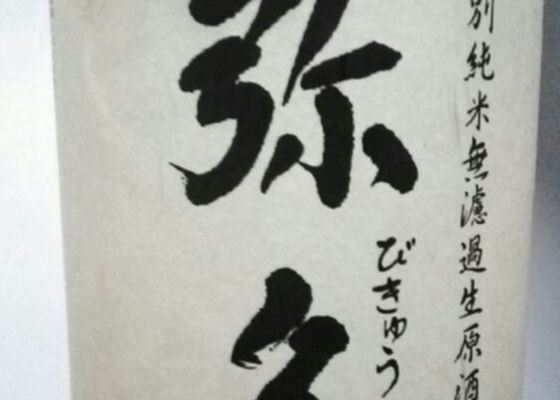 別純米無濾過生原酒
びきゅう
弥